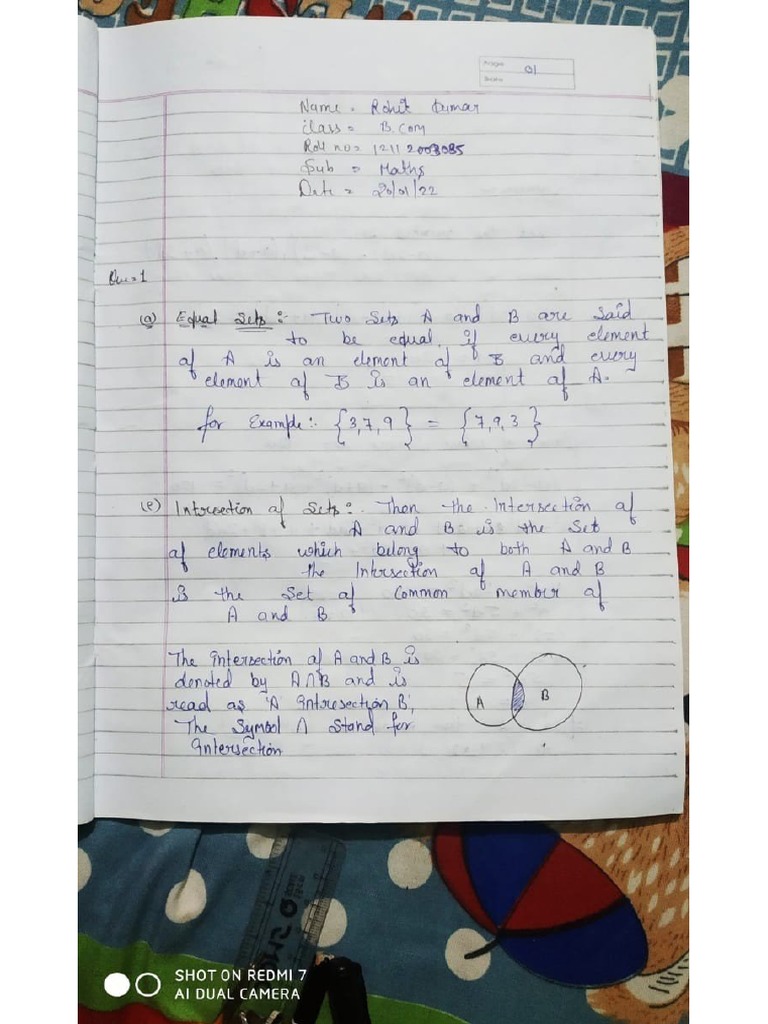 Page 01
Date
Name = Rohit Kumar
Class = B.Com
Roll no = 12112003085
Sub = Maths
Date = 20/01/22
Que = 1
(a) Equal Sets :- Two Sets A and B are Said
to be equal if every element
of A is an element of B and every
element of B is an element of A.
for Example :- {3,7,9} = {7,9,3}
(e) Intrsection of Sets :- Then the Intersection of
A and B is the Set
of elements which belong to both A and B
the Intrsection of A and B
is the Set of Common member of
A and B
The Intersection of A and B is
denoted by A∩B and is
read as 'A Intresection B',
The Symbol ∩ Stand for
Intersection
A B
SHOT ON REDMI 7
AI DUAL CAMERA